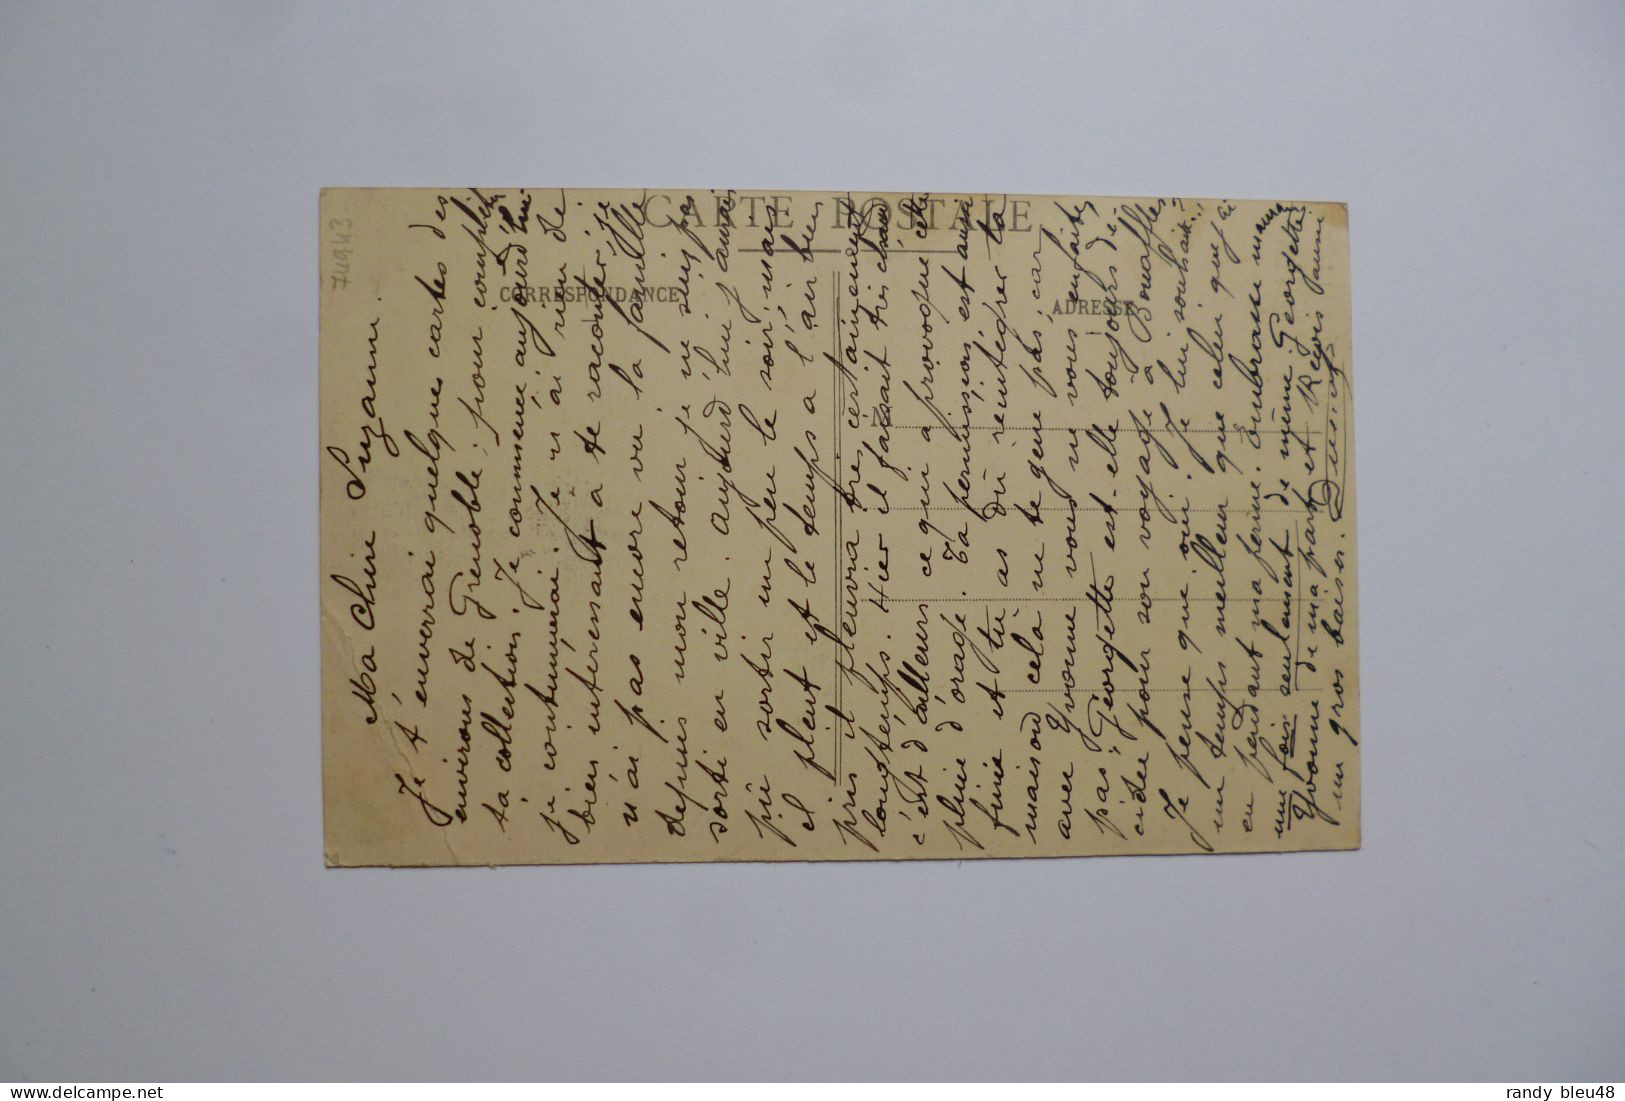 CARTE POSTALE
CORRESPONDANCE
ADRESSE
74943
Ma Chère Suzanne.
Je t'enverrai quelque cartes des
environs de Grenoble; pour compléter
ta collection. Je commence aujourd'hui
je continuerai. Je n'ai rien de
bien intéressant à te raconter, je
n'ai pas encore vu la famille
depuis mon retour je ne suis pas
sorti en ville. aujourd'hui j'aurais
pu sortir un peu le soir, mais
il pleut et le temps a l'air bien
pris il pleuvra très certainement
longtemps. Hier il faisait très chaud
c'est d'ailleurs ce qui a provoqué cette
pluie d'orage. Ta permission est aussi
finie et tu as dû reintégrer la
maison cela ne te gene pas, car
avec Yvonne vous ne vous enfaites
pas; Georgette est-elle toujours dé
cidée pour son voyage à Bouaffles
Je pense que oui. Je lui souhaite
un temps meilleur que celui que j'ai
eu pendant ma perme. embrasse maman
une fois seulement de même Georgette
Yvonne de ma part et Reçois parmi
un gros baiser.
randy bleu48